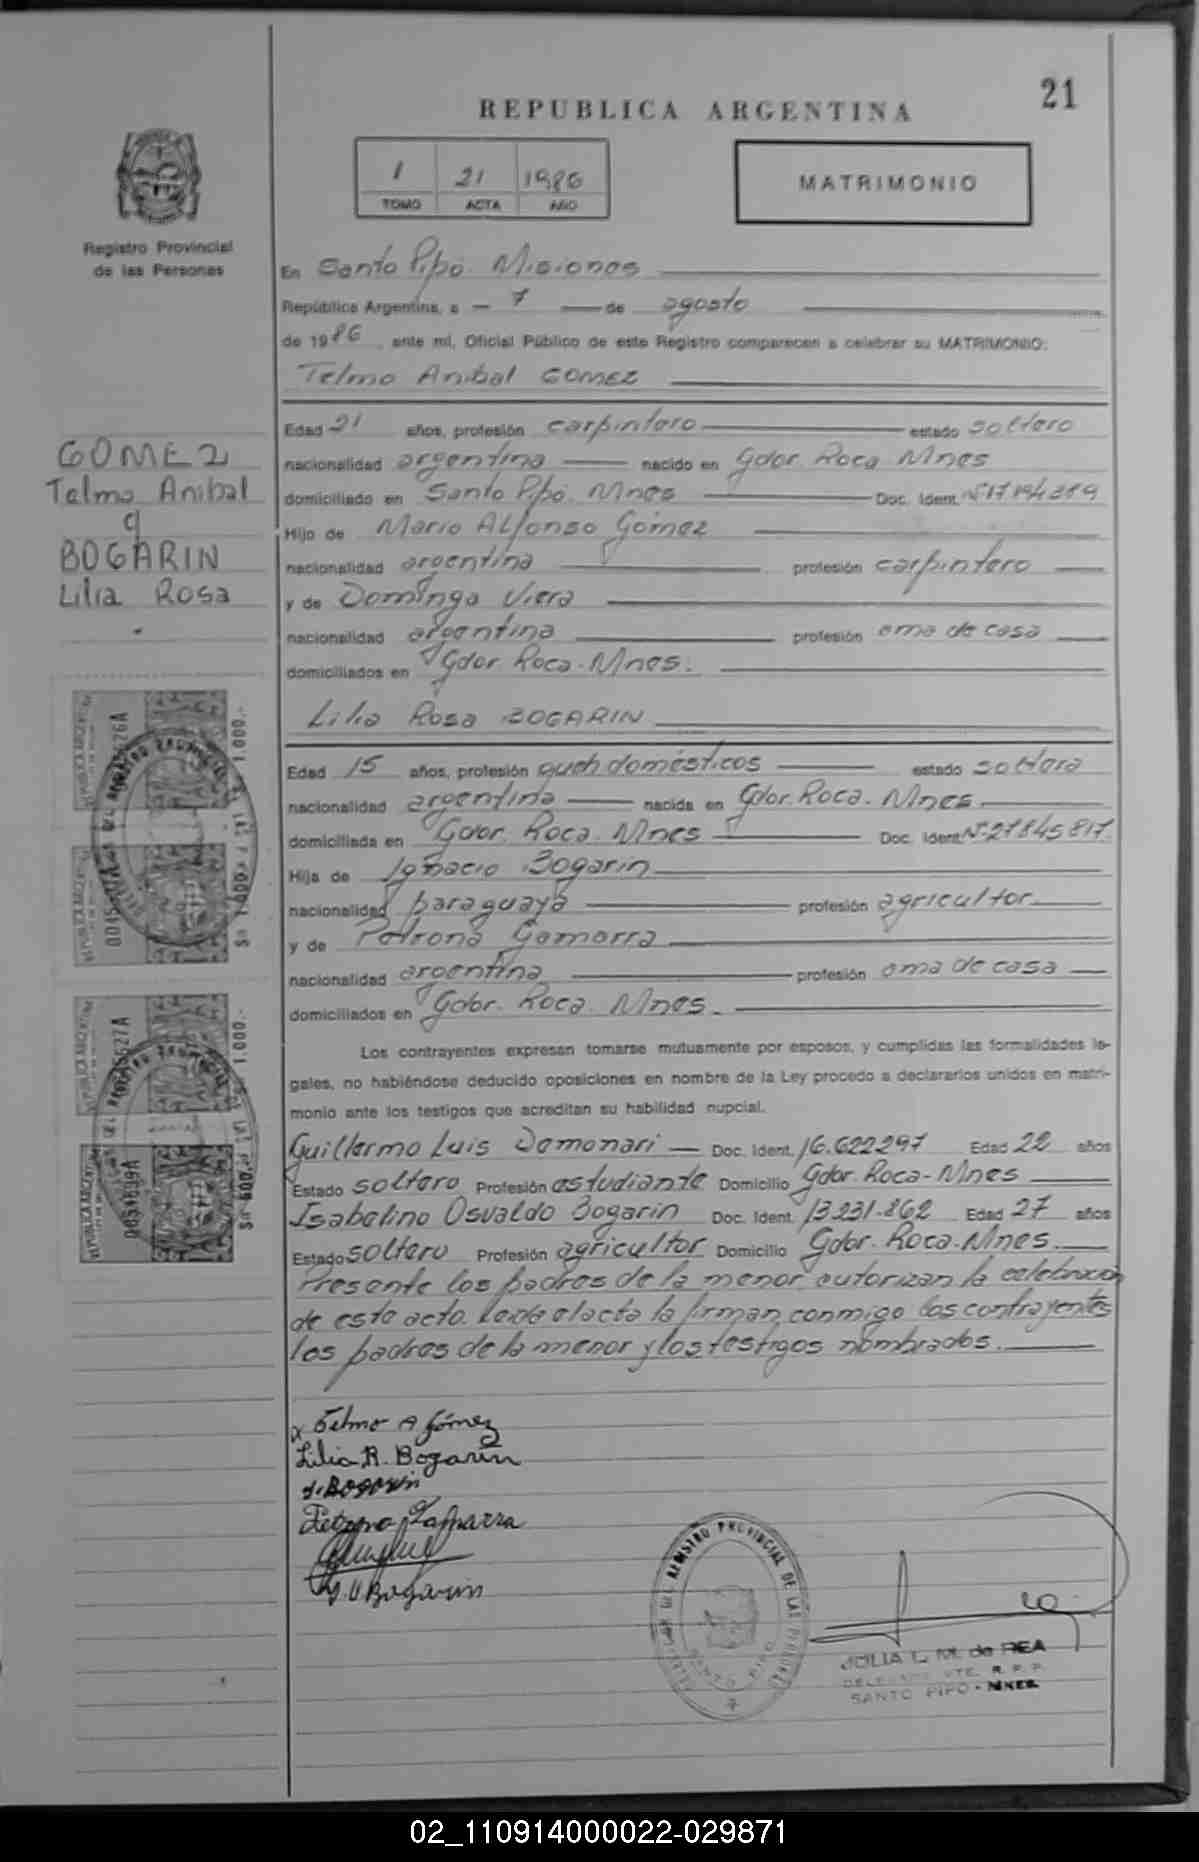 21
REPUBLICA ARGENTINA
1 21 1986
TOMO ACTA AÑO
MATRIMONIO
Registro Provincial
de las Personas
En Santo Pipó. Misiones
República Argentina, a — 7 — de agosto
de 1986, ante mí, Oficial Público de este Registro comparecen a celebrar su MATRIMONIO:
Telmo Anibal GOMEZ
GOMEZ
Telmo Anibal
y
BOGARIN
Lilia Rosa
Edad 21 años, profesión carpintero estado soltero
nacionalidad argentina nacido en Gdor. Roca Mnes
domiciliado en Santo Pipó. Mnes Doc. Ident.
Hijo de Mario Alfonso Gómez
nacionalidad argentina profesión carpintero
y de Dominga Viera
nacionalidad argentina profesión ama de casa
domiciliados en Gdor. Roca. Mnes.
Lilia Rosa BOGARIN
Edad 15 años, profesión queh domésticos estado soltera
nacionalidad argentina nacida en Gdor. Roca. Mnes.
domiciliada en Gdor. Roca. Mnes Doc. Ident. Nº 27845817.
Hija de Ignacio Bogarin
nacionalidad paraguaya profesión agricultor
y de Petrona Gamarra
nacionalidad argentina profesión ama de casa
domiciliados en Gdor. Roca. Mnes.
Los contrayentes expresan tomarse mutuamente por esposos, y cumplidas las formalidades le-
gales, no habiéndose deducido oposiciones en nombre de la Ley procedo a declararlos unidos en matri-
monio ante los testigos que acreditan su habilidad nupcial.
Guillermo Luis Doc. Ident. 16.622297 Edad 22 años
Estado soltero Profesión estudiante Domicilio Gdor. Roca-Mnes
Isabelino Osvaldo Bogarin Doc. Ident. 13231.862 Edad 27 años
Estado soltero Profesión agricultor Domicilio Gdor. Roca. Mnes.
Presente los padres de la menor autorizan la celebración
de este acto. Leida el acta la firman conmigo los contrayentes
los padres de la menor y los testigos nombrados.
x Telmo A Gómez
Lilia R. Bogarin
I. Bogarin
Petrona Gamarra
Bogarin
REGISTRO PROVINCIAL DE LAS PERSONAS
SANTO PIPO
JULIA L. M. de REA
R. P. P.
SANTO PIPO - MNES.
$a 1.000.-
$a 1.000.-
$a 1.000.-
$a 500.-
02_110914000022-029871